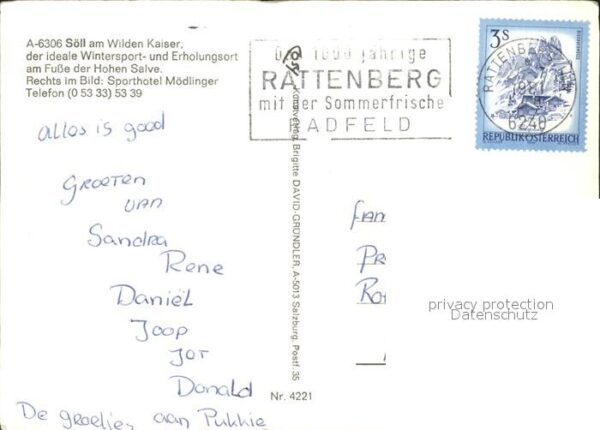 A-6306 Söll am Wilden Kaiser,
der ideale Wintersport- und Erholungsort
am Fuße der Hohen Salve.
Rechts im Bild: Sporthotel Mödlinger
Telefon (0 53 33) 53 39
1000 jährige
RATTENBERG
mit der Sommerfrische
RADFELD
3S
REPUBLIK ÖSTERREICH
RATTENBERG
6240
allos is good
Groeten
van
Sandra
Rene
Daniël
Joop
Jot
Donald
De groetjes aan Pukkie
Brigitte DAVID-GRÜNDLER, A-5013 Salzburg, Postf. 35
Nr. 4221
Fam
Pr
privacy protection
Datenschutz